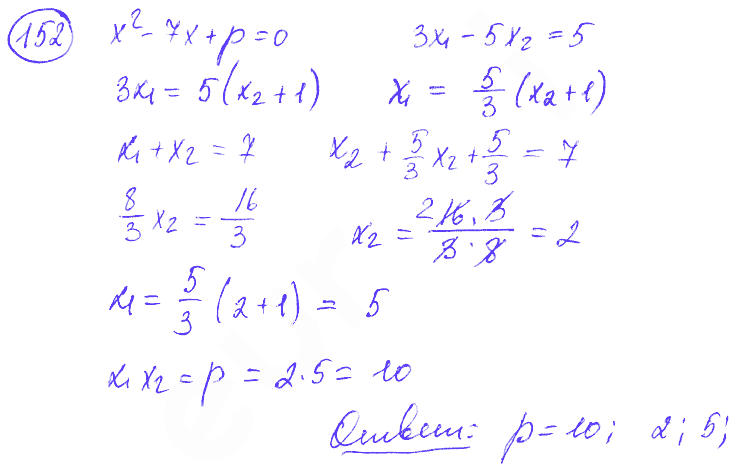 152 x² - 7x + p = 0 3x₁ - 5x₂ = 5
3x₁ = 5(x₂ + 1) x₁ = 5/3 (x₂ + 1)
x₁ + x₂ = 7 x₂ + 5/3 x₂ + 5/3 = 7
8/3 x₂ = 16/3 x₂ = 2 16 · 3 / 3 · 8 = 2
x₁ = 5/3 (2 + 1) = 5
x₁ x₂ = p = 2 · 5 = 10
Ответ: p = 10; 2; 5;